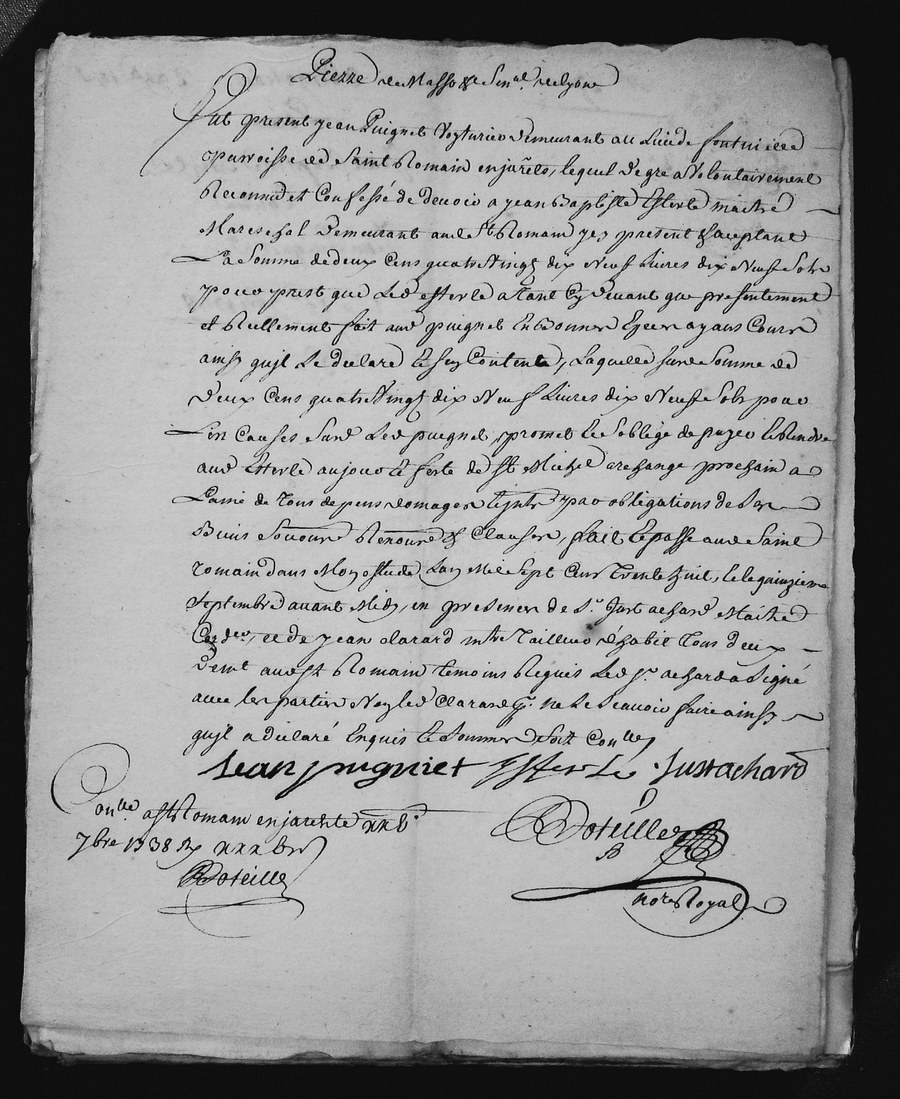 Pierre de Masso &c Sen.al de Lyon
Fut present jean Puigniet Voyturier demeurant au Lieu de fontvieille
parroisse de Saint Romain en jarêts, lequel de gre a volontairement
Reconnu et Confessé de devoir a jean Baptiste Esterle maitre
Mareschal demeurant aud St Romain jcy present & aceptant
La Somme de deux Cens quatre Vingt dix Neuf Livres dix Neuf Sols
pour prest que led esterle a tant cy devant que presentement
et Reellement fait aud puigniet En bonnes Especes ayans Cours
ainsy qu'jl Le declare Et s'en Contente, Laquelle susd Somme de
deux Cens quatre Vingt dix Neuf Livres dix Neuf Sols pour
Les Causes Susd Led puigniet promet Et s'oblige de payer Et Rendre
aud Esterle au jour & feste de St Michel archange prochain a
Paine de Tous depens domages Et jnts par obligations de Ses
Biens Soumons Renons & Clauses, fait Et passé aud Saint
romain dans Mon estude L'an Mil Sept Cens Trente huit, Et le quinzieme
Septembre avant Midy, en presence de Sr. Just achard Maitre
Cord.er, et de jean Clarard mtre Tailleur d'habit Tous deux
dem.t aud St Romain temoins Requis Led Sr. achard a Signé
avec les parties Non led Clarard pr. ne Le Scavoir faire ainsy
qu'jl a declaré Enquis Et Sommé Soit Con.lle
Jean puigniet Esterle Just achard
Con.lle a St Romain en jarêts le xxv.e
7bre 1738 R
Boteille
Boteille
not.re Royal